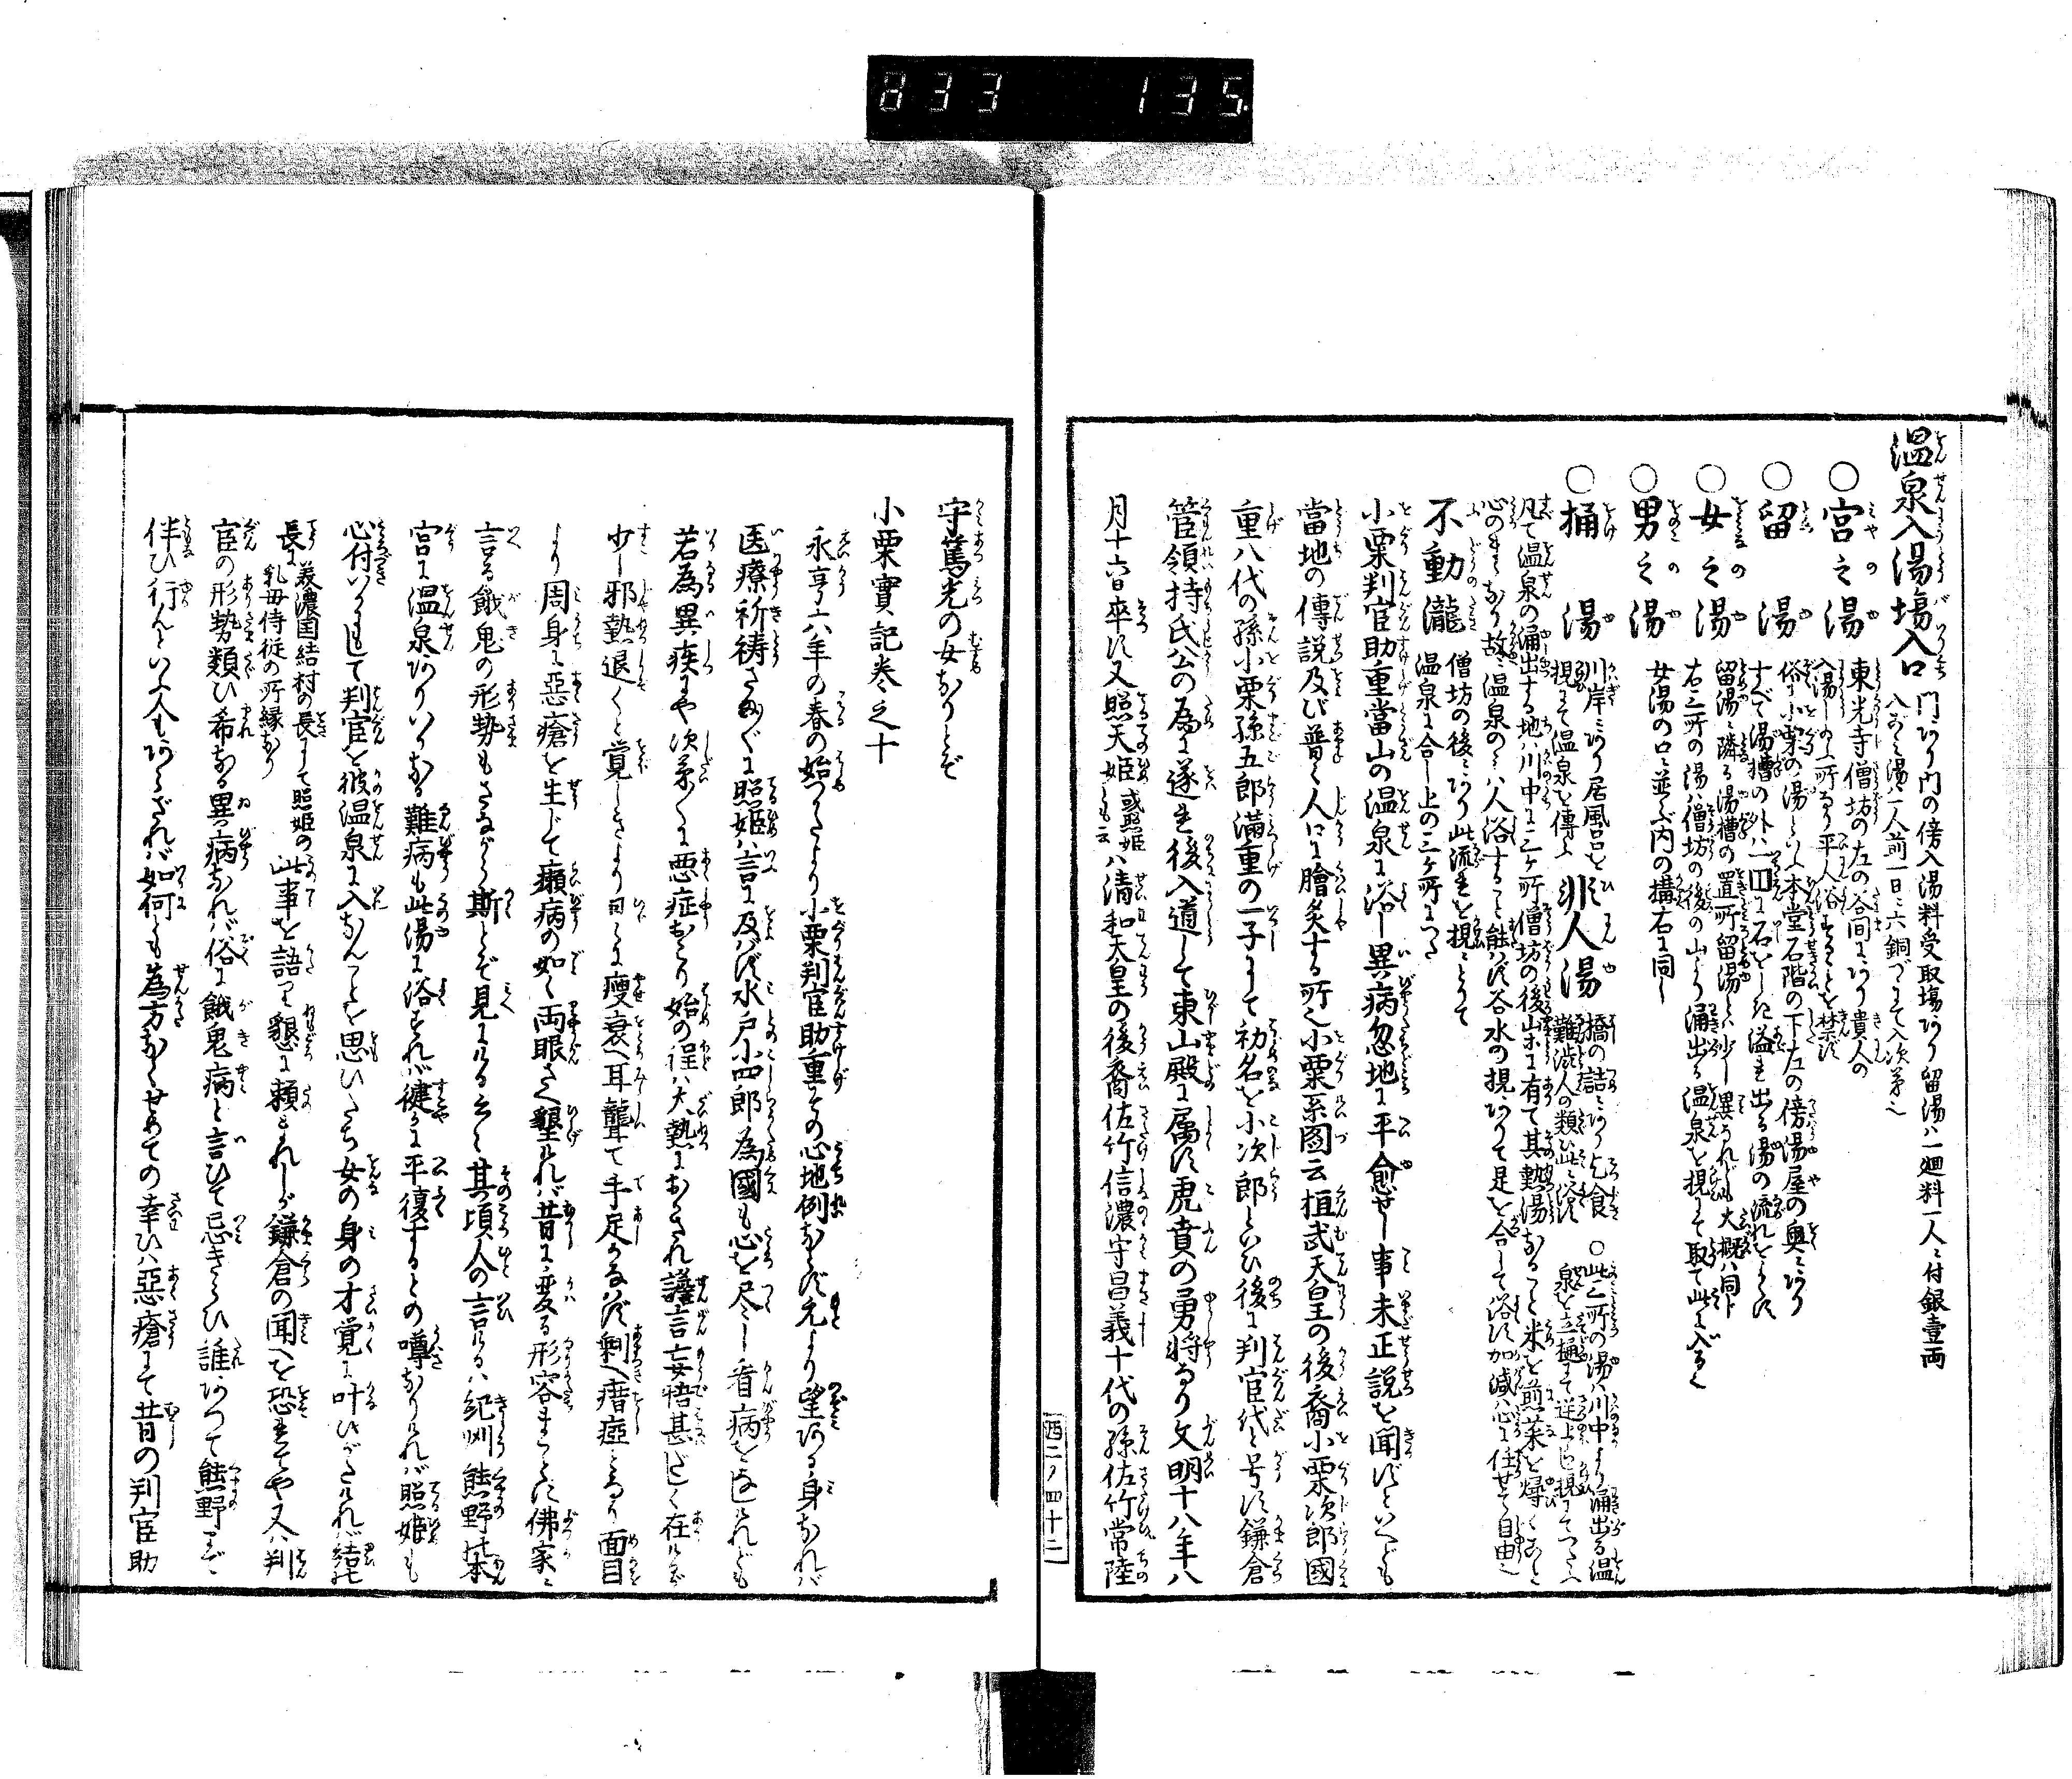 833 135
温泉入湯塲入口
門あり門の傍入湯料受取塲あり留湯ハ一廻料一人ニ付銀壹両
入ごミ湯ハ一人前一日ニ六銅づゝにて入次第也
○宮之湯
東光寺僧坊の左の谷間にあり貴人の
入湯しめ一所なり平人浴することを禁ず
○留湯
俗に小栗の湯といふ本堂石階の下左の傍湯屋の奥にあり
すべて湯槽の外ハ一面に石をしき溢れ出る湯の流れをとらず
○女之湯
留湯に隣る湯槽の置所留湯とハ少し異なれども大概ハ同じ
右三所の湯ハ僧坊の後の山より涌出る温泉を梘にて取て此に入るゝ
○男之湯
女湯の口に並ぶ内の搆右に同し
○桶湯
川岸にあり居風呂を
梘にて温泉を傳ふ
非人湯
橋の詰にあり乞食
難渋人の類此に浴ず
○此二所の湯ハ川中より涌出る温
泉を立樋にて逆上らし梘にてつたふ
凡て温泉の涌出する地ハ川中に三ケ所僧坊の後山に有て其熱湯なること米を煎菜を燖くこと
心のまゝなり故に温泉のミハ人浴すること能ハず谷水の梘ありて是を合して浴ず加減ハ心に任せて自由也
不動瀧
僧坊の後にあり此流れを梘にとりて
温泉に合し上の三ケ所につたふ
小栗判官助重當山の温泉に浴し異病忽地に平愈せし事未正説を聞ずといへども
當地の傳説及び普く人口に膾炙する所也小栗系圖云桓武天皇の後裔小栗次郎國
重八代の孫小栗孫五郎満重の一子にして初名を小次郎といひ後に判官代と号ず鎌倉
管領持氏公の為に遂れ後入道して東山殿に属ず虎賁の勇将なり文明十八年八
月十六日卒ず又照天姫或照姫ともニ云ハ清和天皇の後裔佐竹信濃守昌義十代の孫佐竹常陸
酉二ノ四十二
守篤光の女なりとぞ
小栗實記巻之十
永亨六年の春の始つかたより小栗判官助重その心地例ならず元より望ある身なれバ
医療祈祷さまざまに照姫ハ言に及バず水戸小四郎為國も心を尽し看病をなしけれども
若為異疾にや次第〳〵に悪症おこり始の程ハ大熱におかされ譫言妄悟甚だしく在けるが
少し邪熱退くと覚しきより日に日に痩衰へ耳聾て手足かなはず剰へ瘖瘂となり面目
より周身に惡瘡を生じて癩病の如く両眼さへ墾れバ昔に変る形容まつたく佛家に
言る餓鬼の形勢もさながら斯とぞ見にける爰に其頃人の言けるハ紀州熊野本
宮に温泉ありいかなる難病も此湯に浴すれバ健かに平復するとの噂なりけれバ照姫も
心付いかにもして判官を彼温泉に入なんことを思ひたち女の身の才覚に叶ひがたけれバ結
長に美濃国結村の長にて照姫の乳母侍従の所縁なり此事を語り懇に頼まれしが鎌倉の聞へを恐れてや又ハ判
官の形勢類ひ希なる異病なれバ俗に餓鬼病と言ひて忌きらひ誰ありて熊野まで
伴ひ行んといふ人もあらざれバ如何とも為方なくせめての幸ひハ惡瘡にて昔の判官助